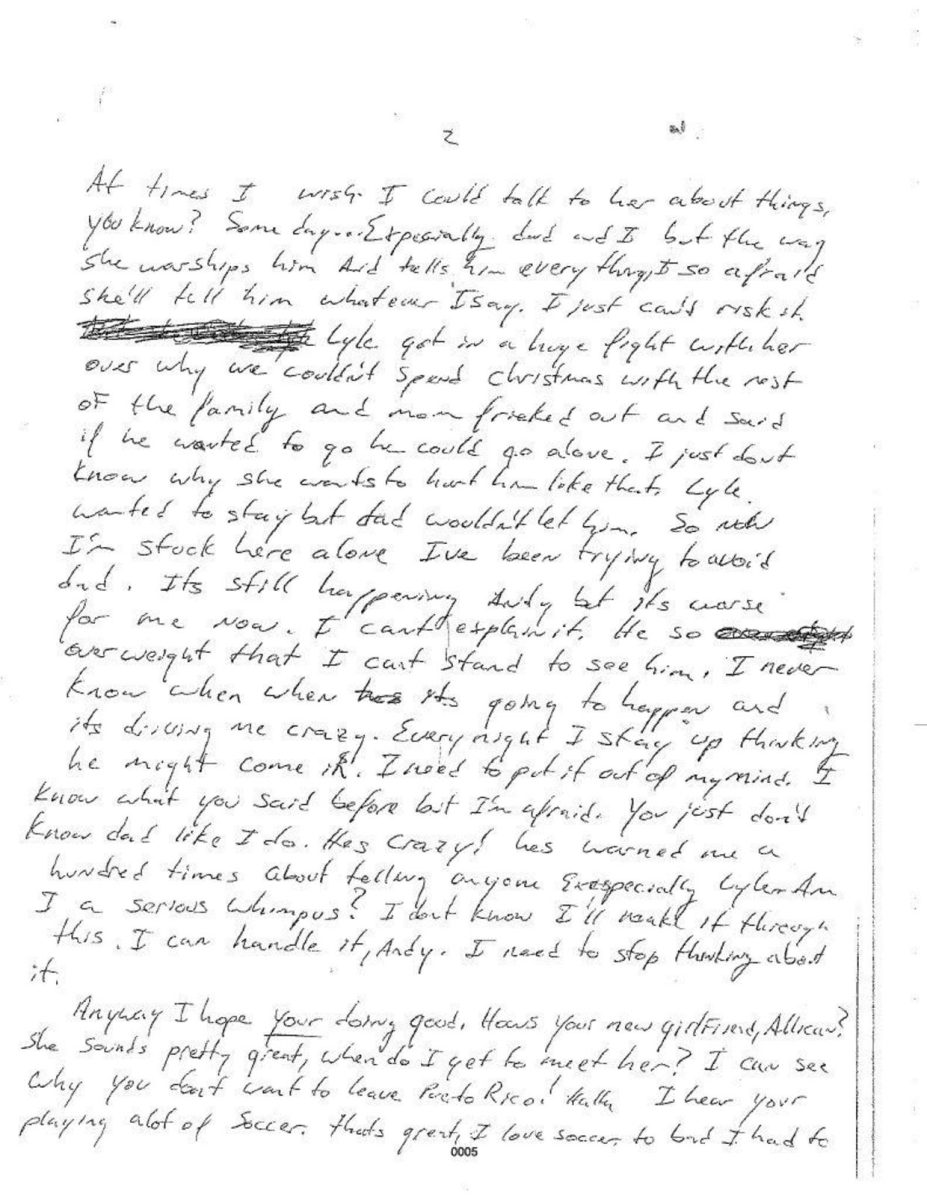 2
At times I wish I could talk to her about things,
you know? Some day... Expecially dad and I but the way
she worships him And tells him everything, I so afraid
she'll tell him whatever I say. I just can't risk it.
Lyle got in a huge fight with her
over why we couldn't spend christmas with the rest
oF the family and mom frieked out and said
if he wanted to go he could go alone. I just dont
know why she wants to hurt him like that. Lyle
wanted to stay but dad wouldn't let him. So now
I'm stuck here alone Ive been trying to avoid
dad. Its still happening Andy but its worse
for me now. I can't explain it. He so
overweight that I cant stand to see him. I never
know when when its going to happen and
its driving me crazy. Every night I stay up thinking
he might come in. I need to put it out of my mind. I
know what you said before but I'm afraid. You just don't
know dad like I do. Hes crazy! hes warned me a
hundred times about telling anyone Exespecially Lyle. Am
I a serious whimpus? I dont know I'll make it through
this. I can handle it, Andy. I need to stop thinking about
it.
Anyway I hope your doing good. Hows your new girlFriend, Allican?
She sounds pretty great, when do I get to meet her? I can see
why you dont want to leave Puerto Rico! I hear your
playing alot of Soccer. thats great, I love soccer, to bad I had to
0005